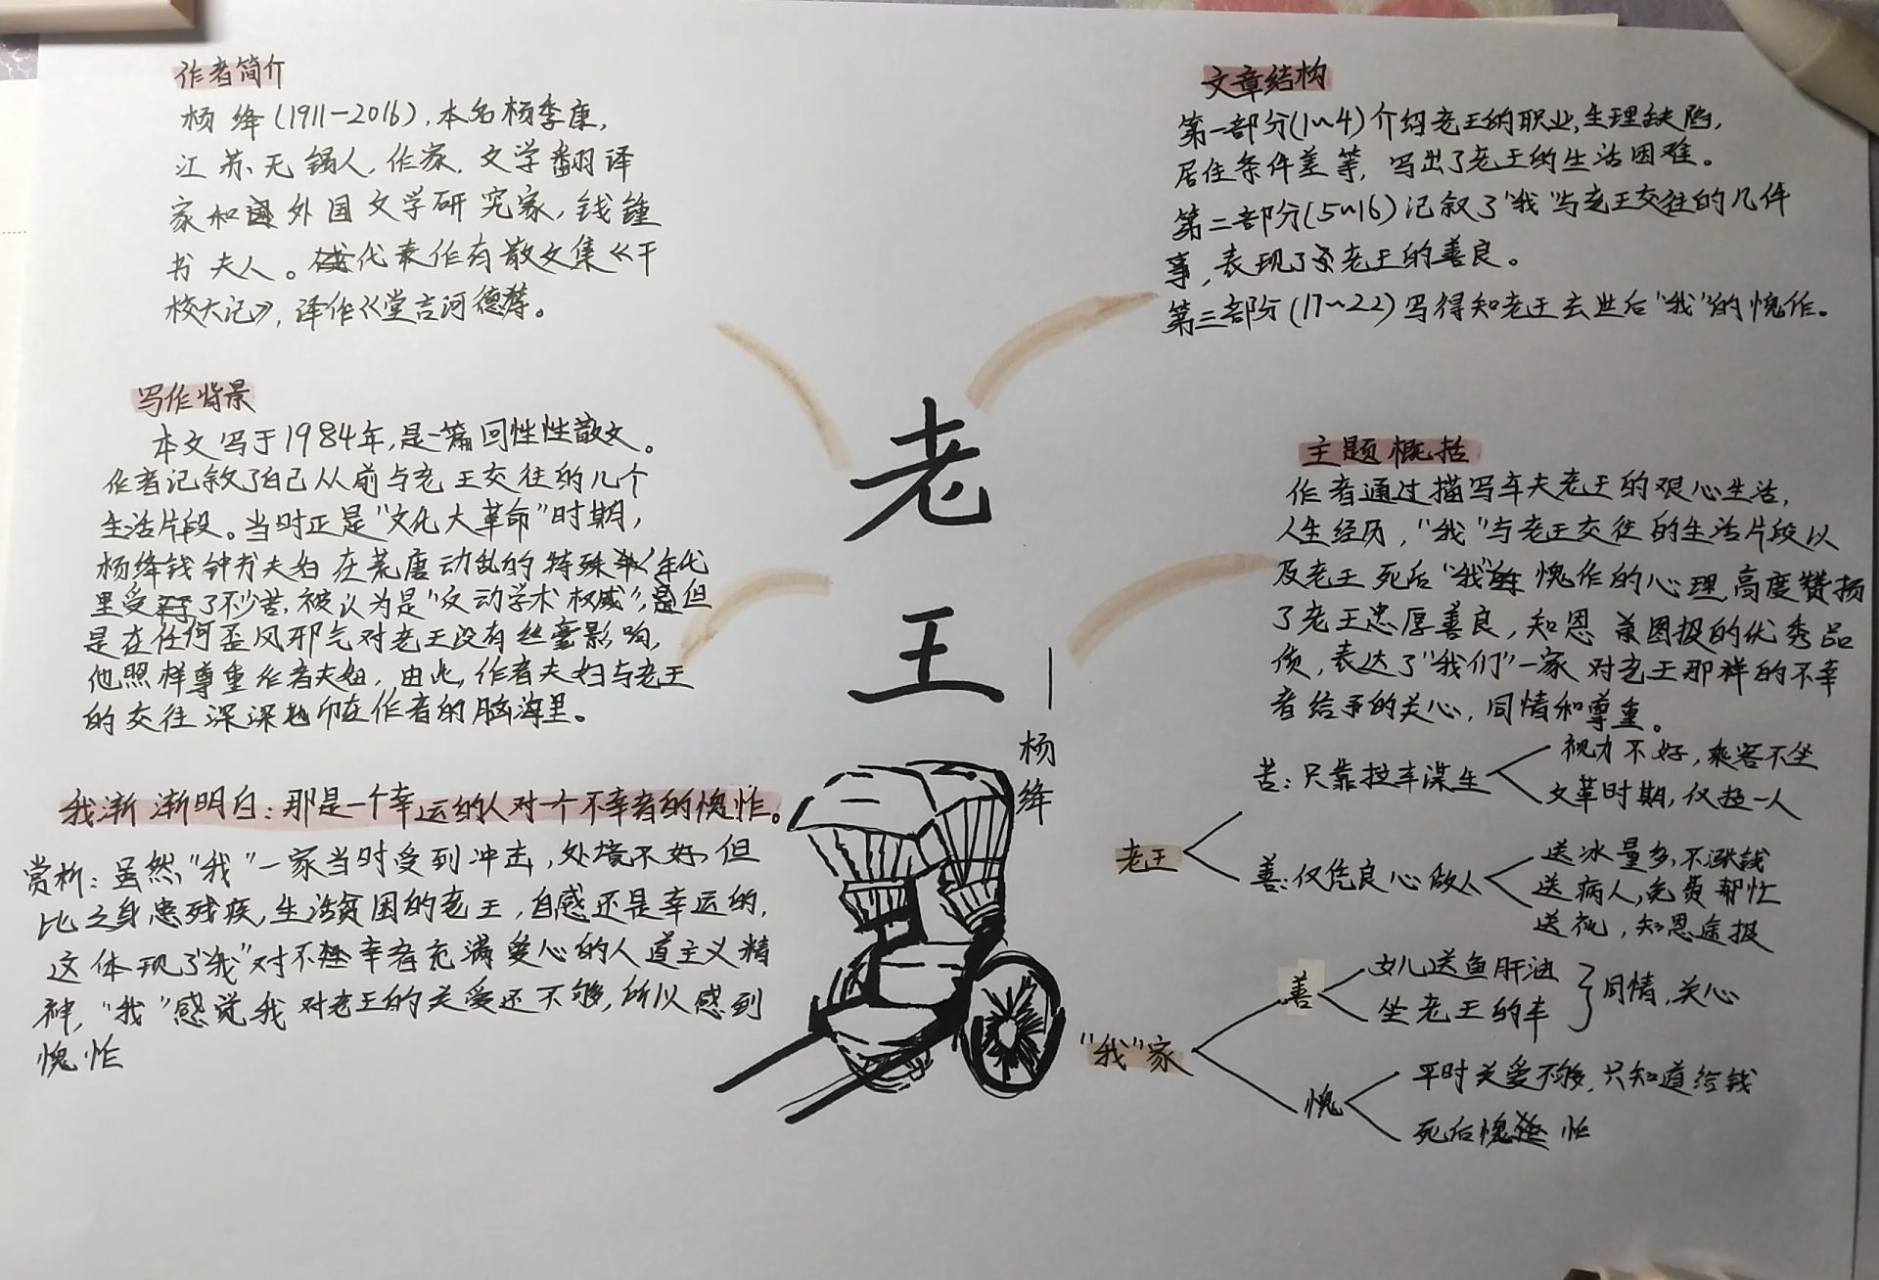 作者简介
杨绛(1911-2016),本名杨季康,
江苏无锡人,作家,文学翻译
家和外国文学研究家,钱锺
书夫人。代表作有散文集《干
校六记》,译作《堂吉诃德》等。
写作背景
本文写于1984年,是一篇回性性散文。
作者记叙了自己从前与老王交往的几个
生活片段。当时正是"文化大革命"时期,
杨绛钱钟书夫妇在荒唐动乱的特殊年代
里受了不少苦,被认为是"反动学术权威",但
是在任何歪风邪气对老王没有丝毫影响,
他照样尊重作者夫妇,由此,作者夫妇与老王
的交往深深地印在作者的脑海里。
我渐渐明白:那是一个幸运的人对一个不幸者的愧怍。
赏析:虽然,"我"一家当时受到冲击,处境不好,但
比之身患残疾,生活贫困的老王,自感还是幸运的,
这体现了"我"对不幸者充满爱心的人道主义精
神,"我"感觉我对老王的关爱还不够,所以感到
愧怍
老王
—杨绛
文章结构
第一部分(1~4)介绍老王的职业,生理缺陷,
居住条件差等,写出了老王的生活困难。
第二部分(5~16)记叙了"我"与老王交往的几件
事,表现了老王的善良。
第三部分(17~22)写得知老王去世后"我"的愧怍。
主题概括
作者通过描写车夫老王的艰心生活,
人生经历,"我"与老王交往的生活片段以
及老王死后"我"愧怍的心理,高度赞扬
了老王忠厚善良,知恩图报的优秀品
质,表达了"我们"一家对老王那样的不幸
者给予的关心,同情和尊重。
老王
苦:只靠拉车谋生
视力不好,乘客不坐
文革时期,仅拉一人
善:仅凭良心做人
送冰量多,不涨钱
送病人,免费帮忙
送礼,知恩途报
"我"家
善
女儿送鱼肝油
坐老王的车
同情,关心
愧
平时关爱不够,只知道给钱
死后愧怍